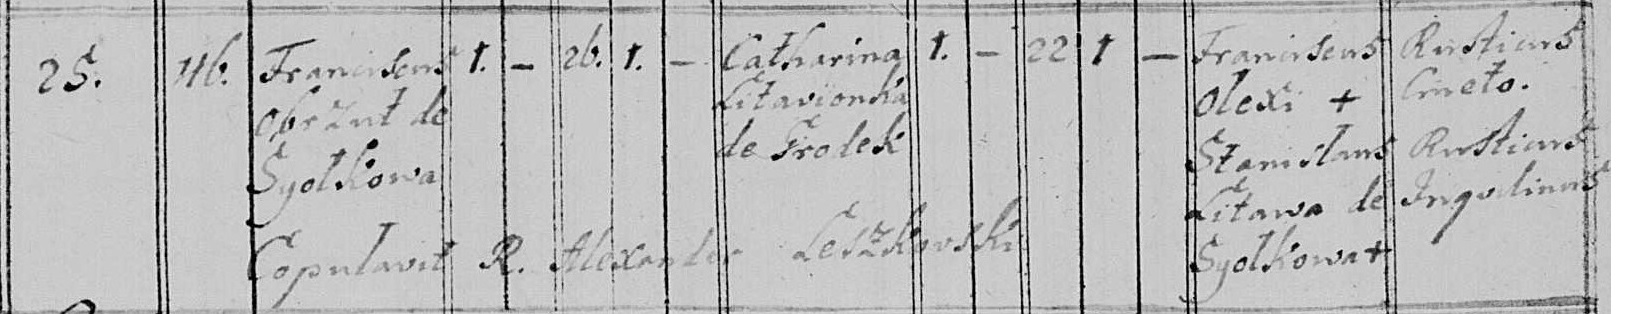 25. 116. Franciscus 1. - 26. 1. - Catharina 1. - 22 1 - Franciscus Rusticus
Obrzut de Litavionka Olexi + Cmeto.
Syolkowa de Frodek Stanislaus Rusticus
Litawa de Inqvilinus
Copulavit R. Alexander Leszkovski Syolkowa +